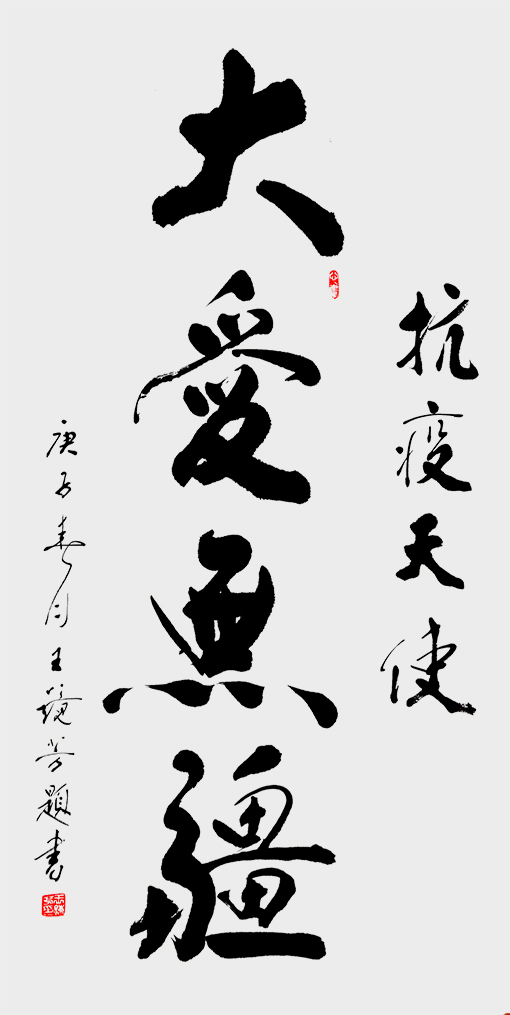 抗疫天使
大愛無疆
庚子春月王 芳題書